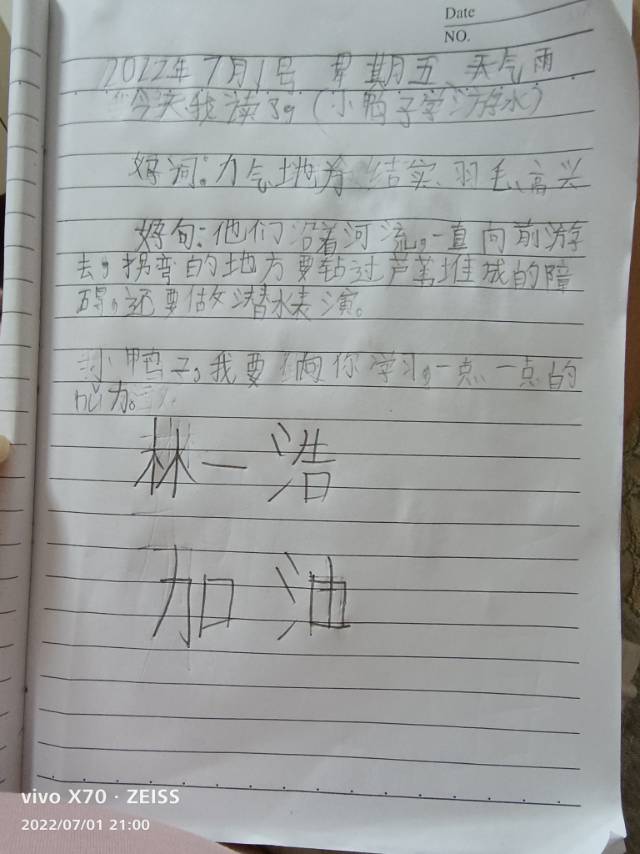 Date
NO.
2022年7月1号 星期五 天气雨
今天我读了(小鸭子学游水)
好词:力气 地方 结实 羽毛、高兴
好句:他们沿着河流,一直向前游
去,拐弯的地方要钻过芦苇堆成的障
碍,还要做潜水表演。
小鸭子,我要向你学习,一点一点的
加力。
林一浩
加油
vivo X70 · ZEISS
2022/07/01 21:00